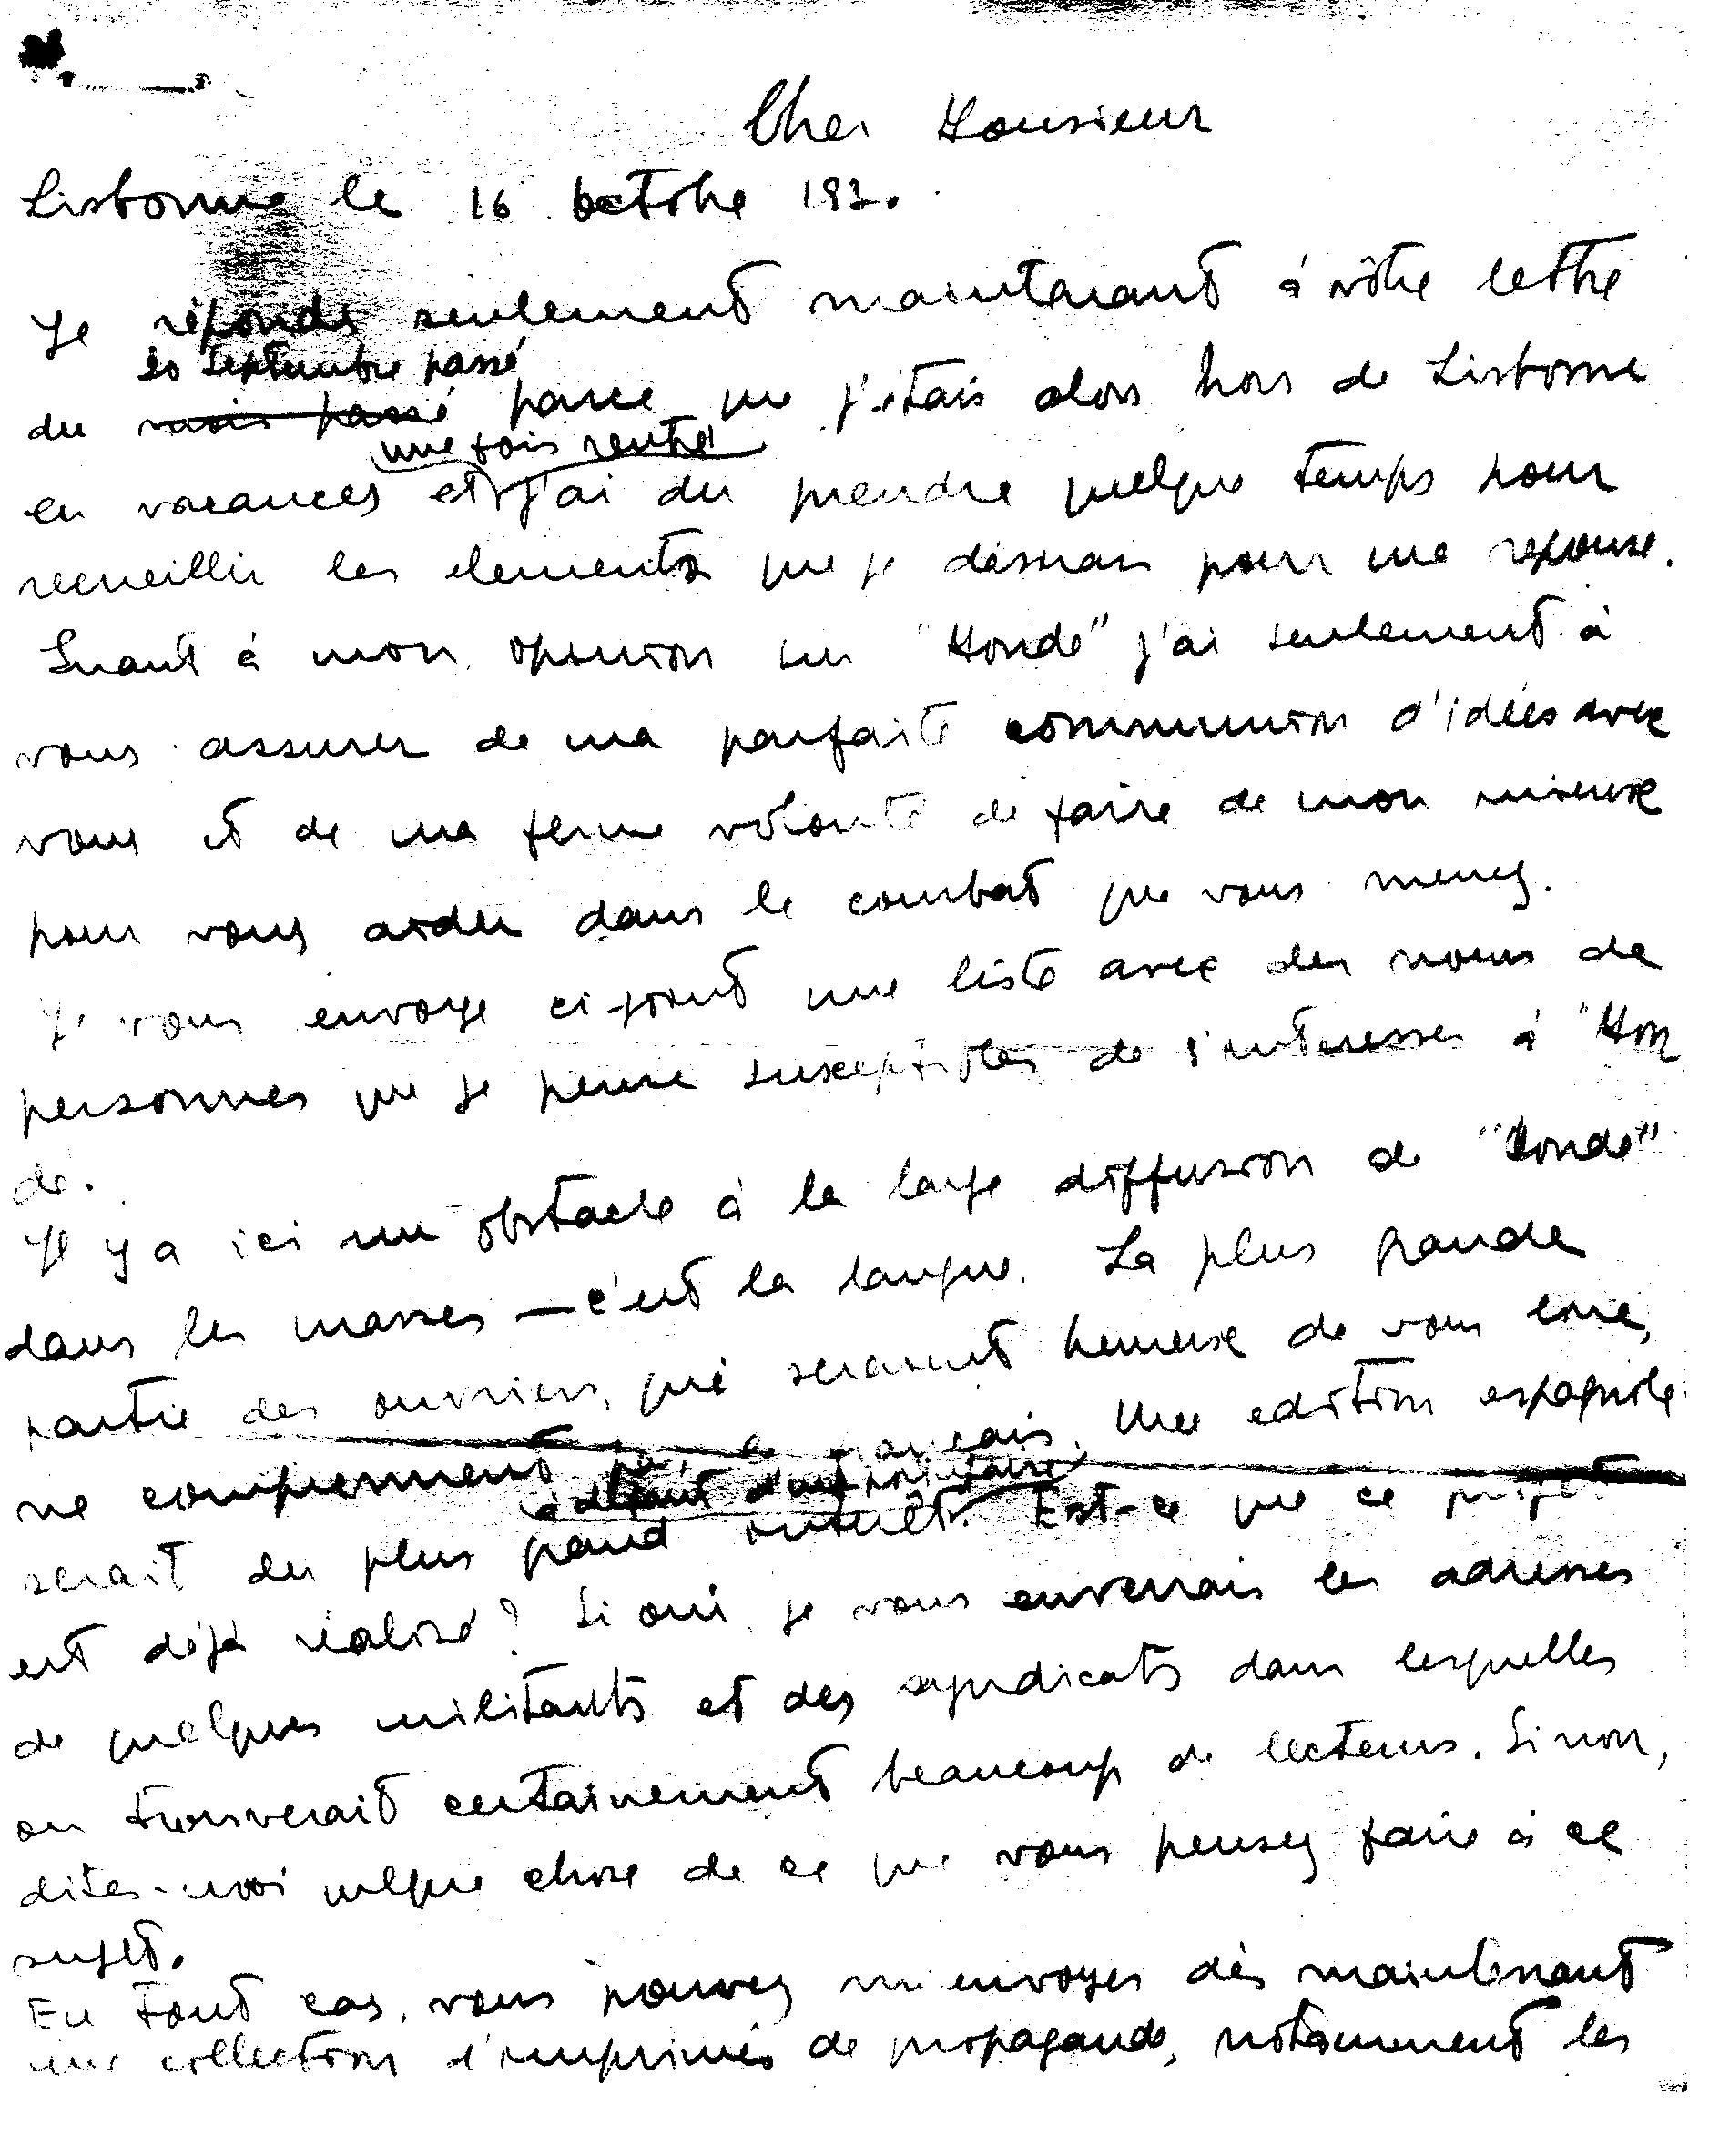 Cher Monsieur
Lisbonne le 16 octobre 193.
Je réponds seulement maintanant à vôtre lettre
20 septembre passé
du mois passé parce que j'étais alors hors de Lisbonne
une fois rentré
en vacances et j'ai du prendre quelque temps pour
recueillir les elements que je désirais pour ma reponse.
Quant à mon opinion sur "Monde" j'ai seulement à
vous assurer de ma parfaite communion d'idées avec
vous et de ma ferme volonté de faire de mon mieux
pour vous aider dans le combat que vous menez.
Je vous envoye ci-joint une liste avec des noms de
personnes que je pense susceptibles de s'interesser à "Mon
de.
Il y a ici un obstacle à la large diffusion de "Monde"
dans les masses — c'est la langue. La plus grande
partie des ouvriers, qui seraient heureux de vous lire,
ne comprennent pas le français. Une edition espagnole
à défaut d'une portugaise
serait du plus grand intérêt. Est-ce que ce projet
est déjà réalisé? Si oui, je vous enverrais les adresses
de quelques militants et des syndicats dans lesquelles
on trouverait certainement beaucoup de lecteurs. Sinon,
dites-moi quelque chose de ce que vous pensez faire à ce
sujet.
En tout cas, vous pouvez m'envoyer dès maintenant
une collection d'imprimés de propagande, notamment les